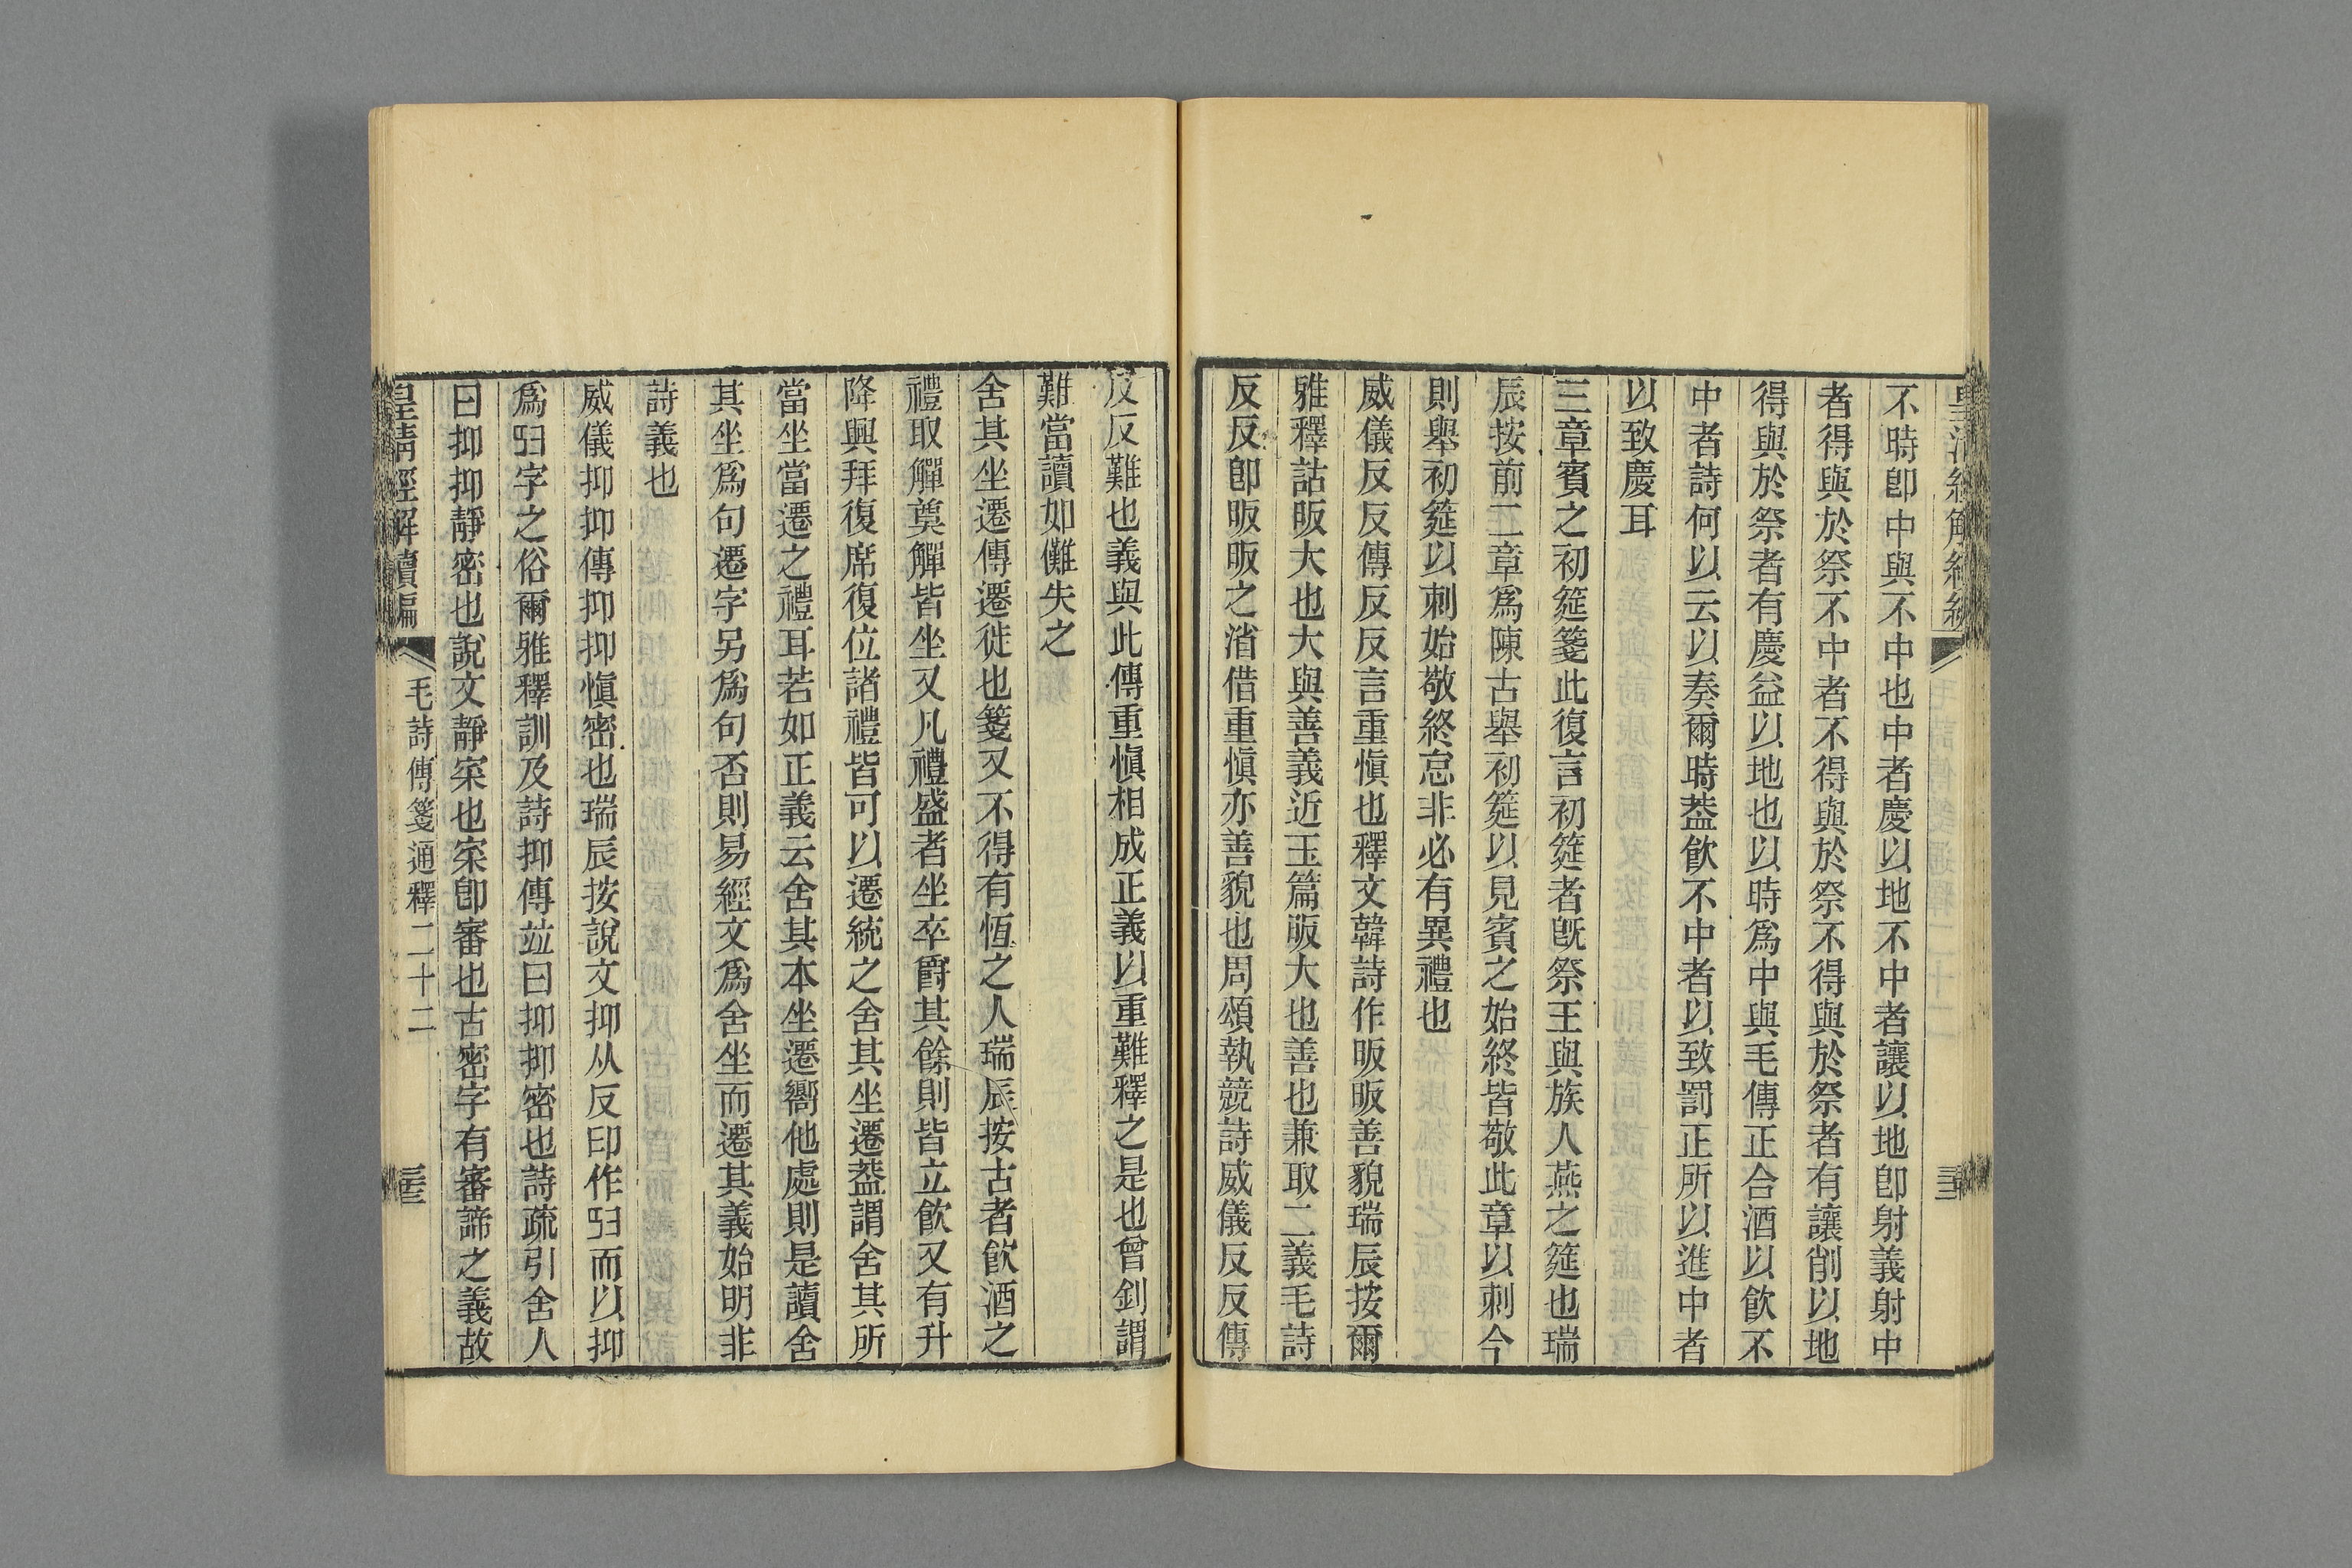 不時卽中與不中也中者慶以地不中者讓以地卽射義射中
者得與於祭不中者不得與於祭不得與於祭者有讓削以地
得與於祭者有慶益以地也以時爲中與毛傳正合酒以飮不
中者詩何以云以奏爾時葢飮不中者以致罰正所以進中者
以致慶耳
三章賓之初筵箋此復言初筵者旣祭王與族人燕之筵也瑞
辰按前二章爲陳古舉初筵以見賓之始終皆敬此章以刺今
則舉初筵以刺始敬終怠非必有異禮也
威儀反反傳反反言重愼也釋文韓詩作昄昄善貌瑞辰按爾
雅釋詁昄大也大與善義近玉篇昄大也善也兼取二義毛詩
反反卽昄昄之渻借重愼亦善貌也周頌執競詩威儀反反傳
反反難也義與此傳重愼相成正義以重難釋之是也曾釗謂
難當讀如儺失之
舍其坐遷傳遷徙也箋又不得有恆之人瑞辰按古者飮酒之
禮取觶奠觶皆坐又凡禮盛者坐卒爵其餘則皆立飮又有升
降興拜復席復位諸禮皆可以遷統之舍其坐遷葢謂舍其所
當坐當遷之禮耳若如正義云舍其本坐遷嚮他處則是讀舍
其坐爲句遷字另爲句否則易經文爲舍坐而遷其義始明非
詩義也
威儀抑抑傳抑抑愼密也瑞辰按說文抑从反印作𢑏而以抑
爲𢑏字之俗爾雅釋訓及詩抑傳竝曰抑抑密也詩疏引舍人
曰抑抑靜密也說文靜宷也宷卽審也古密字有審諦之義故
皇清經解續編
毛詩傳箋通釋二十二